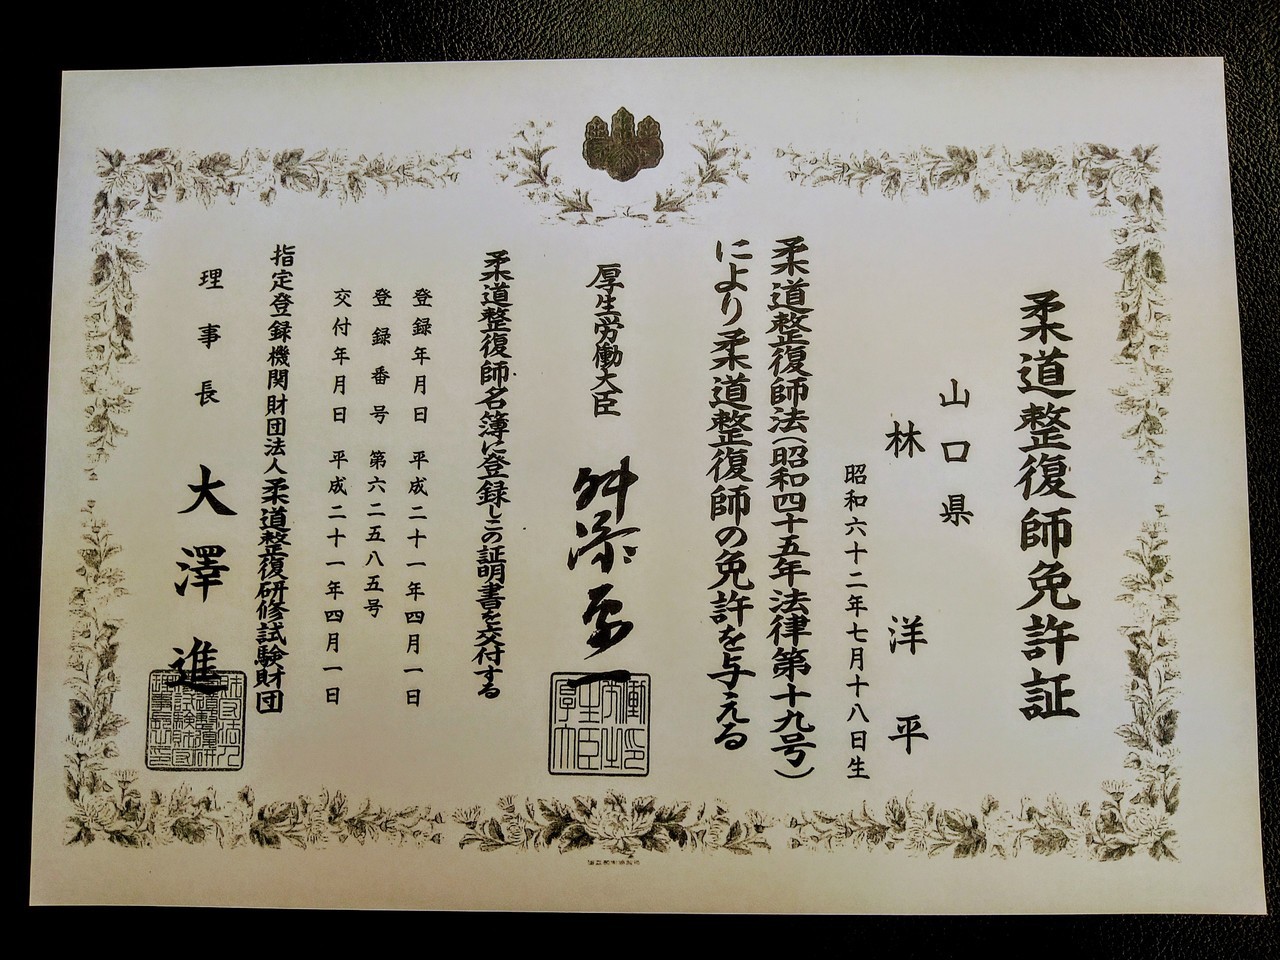 柔道整復師免許証
山口県
林 洋平
昭和六十二年七月十八日生
柔道整復師法（昭和四十五年法律第十九号）
により柔道整復師の免許を与える
厚生労働大臣 舛添要一
柔道整復師名簿に登録しこの証明書を交付する
登録年月日 平成二十一年四月一日
登録番号 第六二五八五号
交付年月日 平成二十一年四月一日
指定登録機関財団法人柔道整復研修試験財団
理事長 大澤進